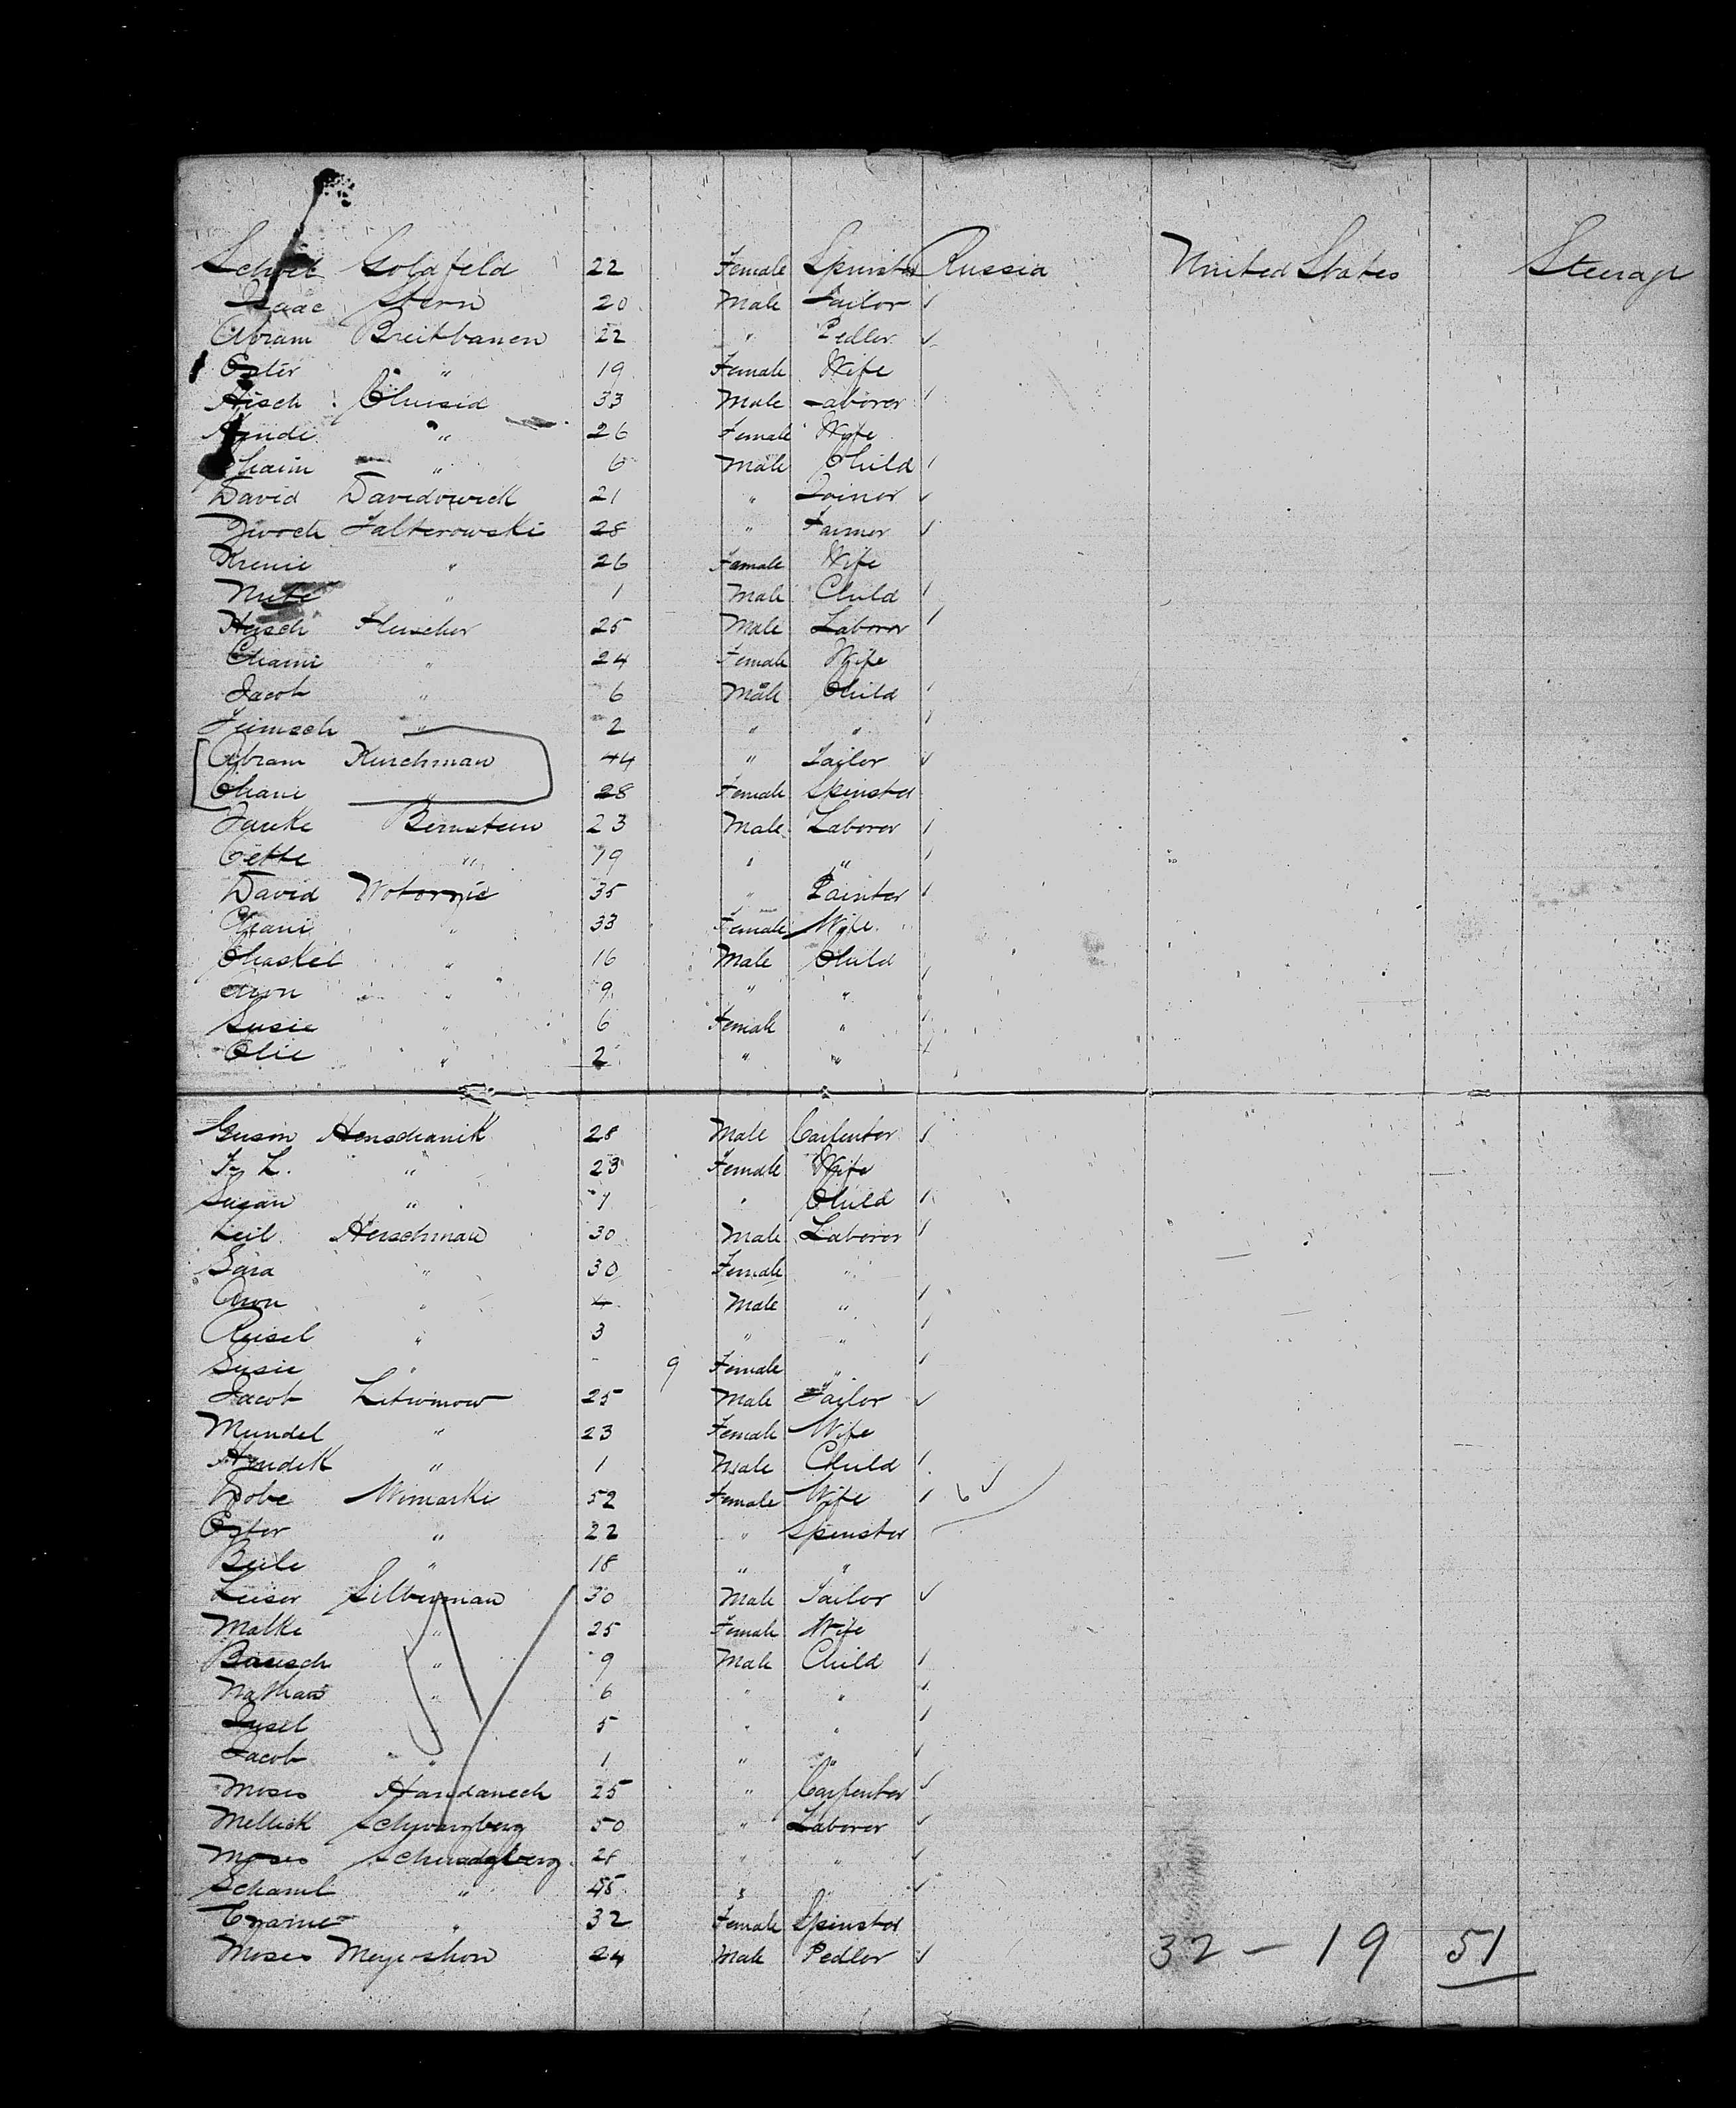 Goldfeld 22 Female Spinster Russia United States Steerage
Isaac Stern 20 Male Tailor
Abram Breitbanen 22 " Pedler
Ester " 19 Female Wife
Hisch 33 Male Laborer
" 26 Female Wife
Chaim " 6 Male Child
David Davidowick 21 " Joiner
Falterowski 28 " Farmer
" 26 Female Wife
" 1 Male Child
Hersch 25 Male Laborer
Chani " 24 Female Wife
Jacob " 6 Male Child
" 2 " "
Abram Kurchman 44 " Tailor
Chani " 28 Female Spinster
Bernstein 23 Male Laborer
" 19 " "
David 35 " Painter
Chani " 33 Female Wife
Chaskel " 16 Male Child
Aron " 9 " "
Susie " 6 Female "
" 2 " "
28 Male Carpenter
" 23 Female Wife
Susan " 1 " Child
Leil Herschman 30 Male Laborer
Sara " 30 Female "
Aron " 4 Male "
Reisel " 3 " "
Susie " 9 Female "
Jacob Litwinow 25 Male Tailor
Mundel " 23 Female Wife
" 1 Male Child
Dobe 52 Female Wife
Ester " 22 " Spinster
Beile " 18 " "
Leiser Silberman 30 Male Tailor
Malke " 25 Female Wife
" 9 Male Child
Nathan " 6 " "
5 " "
Jacob " 1 " "
Moses Handanech 25 " Carpenter
Mellick Schwarzberg 50 " Laborer
Moses " "
" "
" 32 Female Spinster
Moses Meyershon 24 Male Pedler
32 - 19 51